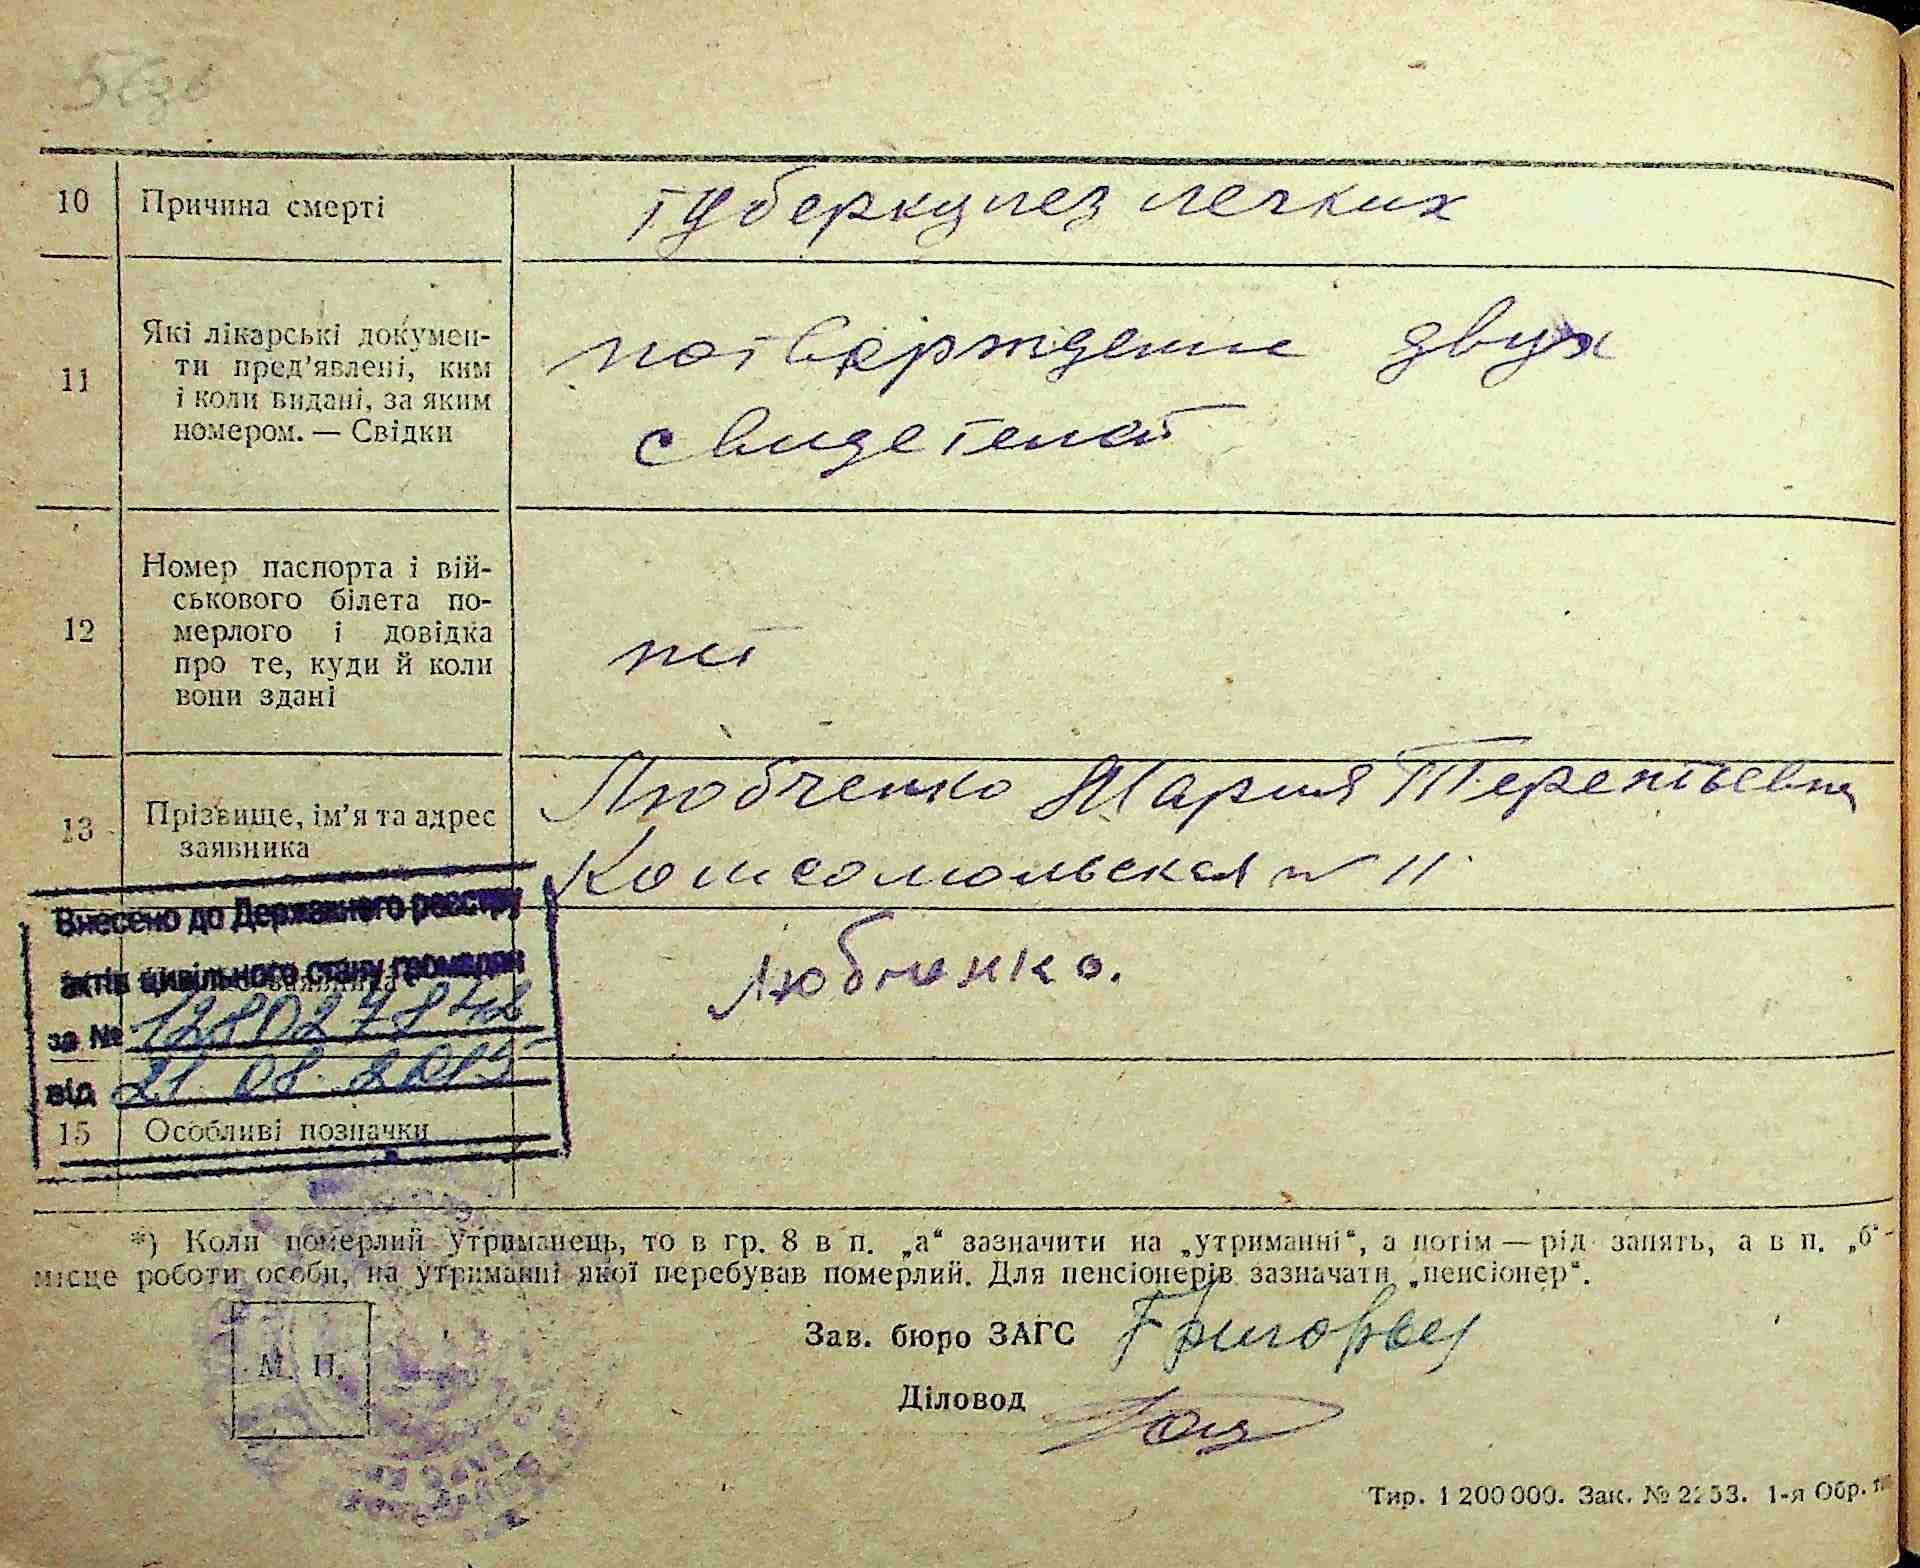 10 Причина смерті
туберкулез легких
11 Які лікарські докумен-
ти пред'явлені, ким
і коли видані, за яким
номером. — Свідки
потверждение двух
свидетелей
12 Номер паспорта і вій-
ськового білета по-
мерлого і довідка
про те, куди й коли
вони здані
нет
13 Прізвище, ім'я та адрес
заявника
Любченко Мария Терентьевна
Комсомольская № 11
Внесено до Державного реєстру
актів цивільного стану громадян
заявника
за № 128027842
від 21.08.2015
Любченко.
15 Особливі позначки
*) Коли померлий утриманець, то в гр. 8 в п. „а“ зазначити на „утриманні“, а потім — рід занять, а в п. „б“ -
місце роботи особи, на утриманні якої перебував померлий. Для пенсіонерів зазначати „пенсіонер“.
М. П.
Зав. бюро ЗАГС
Діловод
Тир. 1 200 000. Зак. № 2253. 1-я Обр.